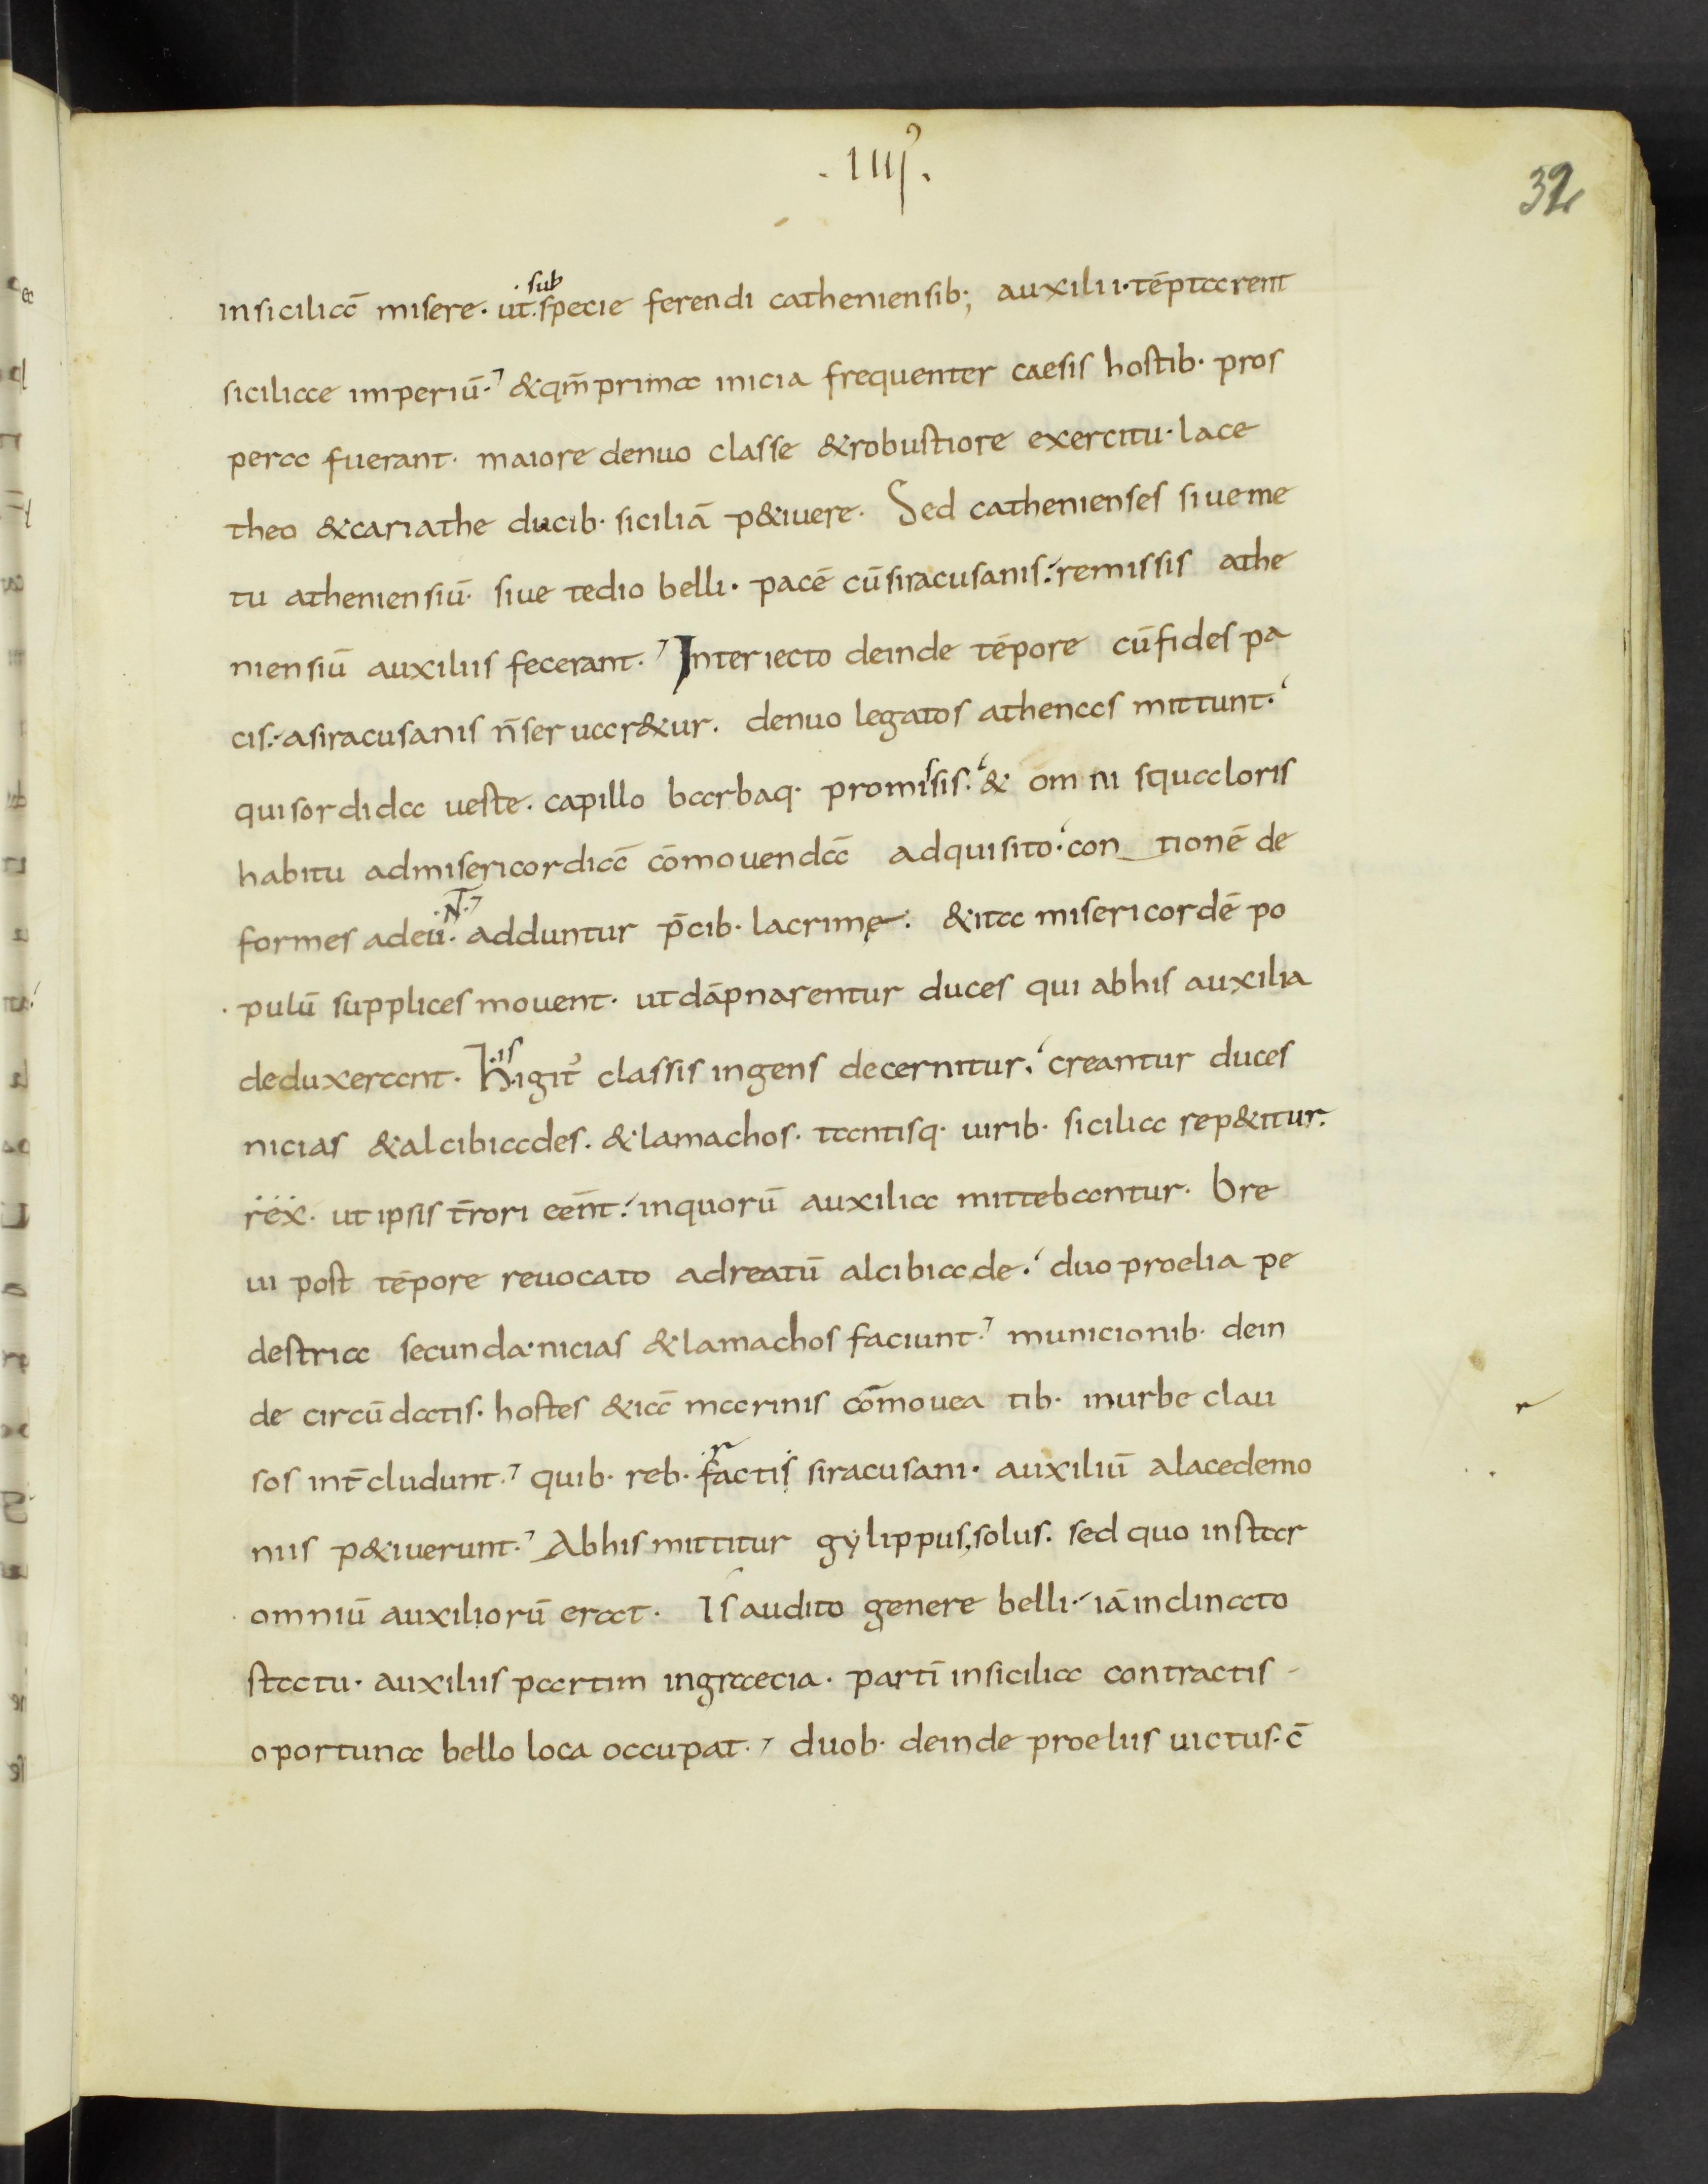 .IIII.
32
insiciliā misere. ut sub specie ferendi catheniensib; auxilii. tēptarent
siciliae imperiū. & qm̄ prima inicia frequenter caesis hostib. pros
pera fuerant. maiore denuo classe & robustiore exercitu. lace
theo & cariathe ducib. siciliā p&iuere. Sed cathenienses siue me
tu atheniensiū. siue tedio belli. pacē cū siracusanis. remissis athe
niensiū auxiliis fecerant. Interiecto deinde tēpore cū fides pa
cis. a siracusanis n̄ seruar&ur. denuo legatos athenas mittunt.
qui sordida ueste. capillo barbaq. promissis. & omni squaloris
habitu admisericordiā cōmouendā adquisito. contionē de
formes adeuNT. adduntur p̄cib. lacrimę. & ita misericordē po
pulū supplices mouent. ut dāpnarentur duces qui abhis auxilia
deduxerant. His igit᷒ classis ingens decernitur. creantur duces
nicias & alcibiades. & lamachos. tantisq. uirib. sicilia rep&itur.
rex. ut ipsis t̄rori eēnt. inquorū auxilia mittebantur. bre
ui post tēpore reuocato adreatū alcibiade. duo proelia pe
destria secunda. nicias & lamachos faciunt. municionib. dein
de circūdatis. hostes &iā marinis cōmouea tib. inurbe clau
sos int̄cludunt. quib. reb. fractis siracusani. auxiliū alacedemo
niis p&iuerunt. Abhis mittitur gylippus, solus. sed quo instar
omniū auxiliorū erat. Is audito genere belli. iā inclinato
statu. auxiliis partim ingraecia. partī insicilia contractis
oportuna bello loca occupat. duob. deinde proeliis uictus. c̄
r